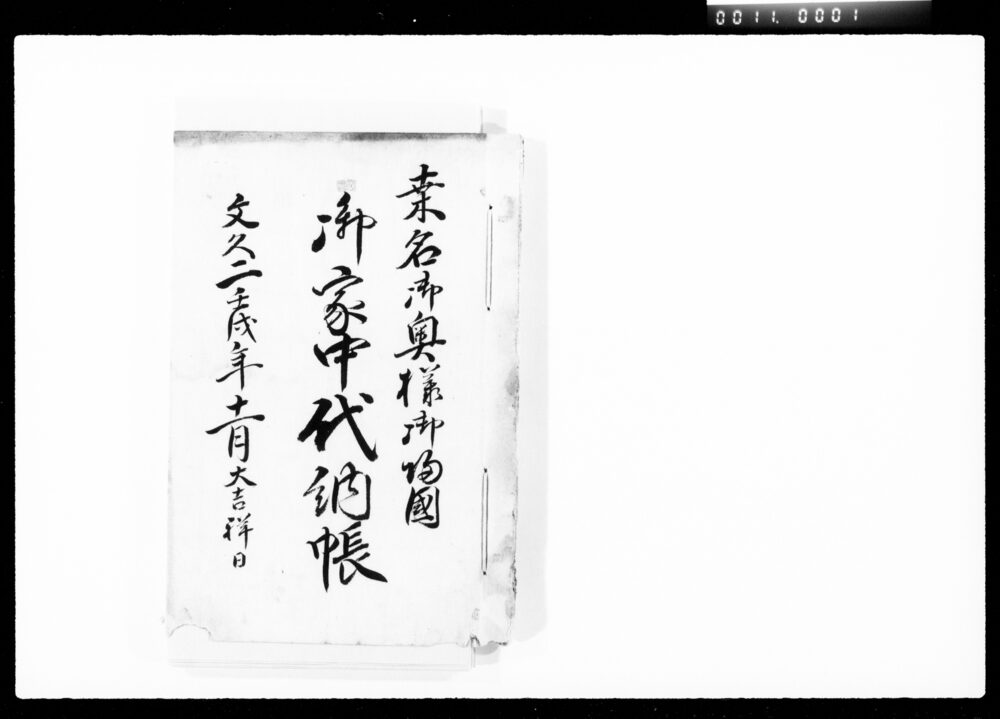 0011.0001
桒名御奥様御帰國
御家中代納帳
文久二壬戌年十一月大吉祥日